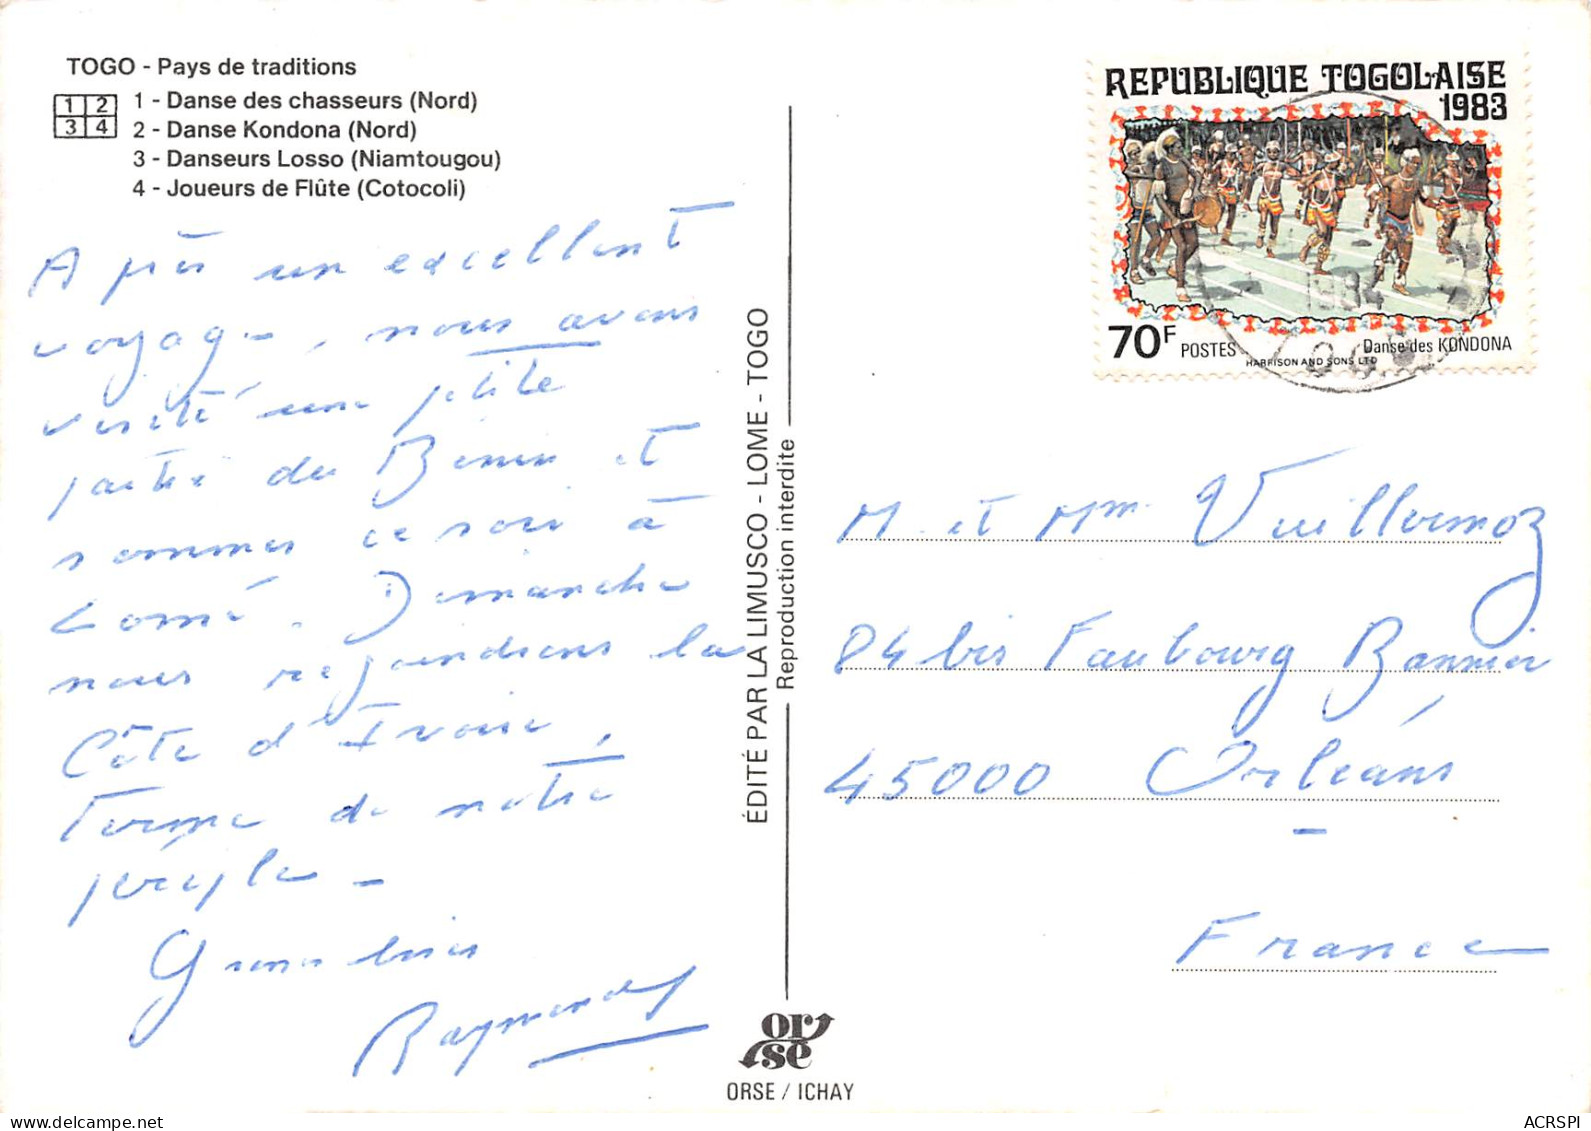 TOGO - Pays de traditions
1 2
3 4
1 - Danse des chasseurs (Nord)
2 - Danse Kondona (Nord)
3 - Danseurs Losso (Niamtougou)
4 - Joueurs de Flûte (Cotocoli)
Après un excellent
voyage, nous avons
visité une petite
partie du Benin et
sommes ce soir à
Lomé. Dimanche
nous rejoindrons la
Côte d'Ivoire,
terme de notre
périple -
Gros bises
Raymonde
ÉDITÉ PAR LA LIMUSCO - LOME - TOGO
Reproduction interdite
orse
ORSE / ICHAY
REPUBLIQUE TOGOLAISE
1983
70F POSTES
Danse des KONDONA
HARRISON AND SONS LTD
M. et Mme Vuillermoz
84 bis Faubourg Bannier
45000 Orléans
France
ACRSPI